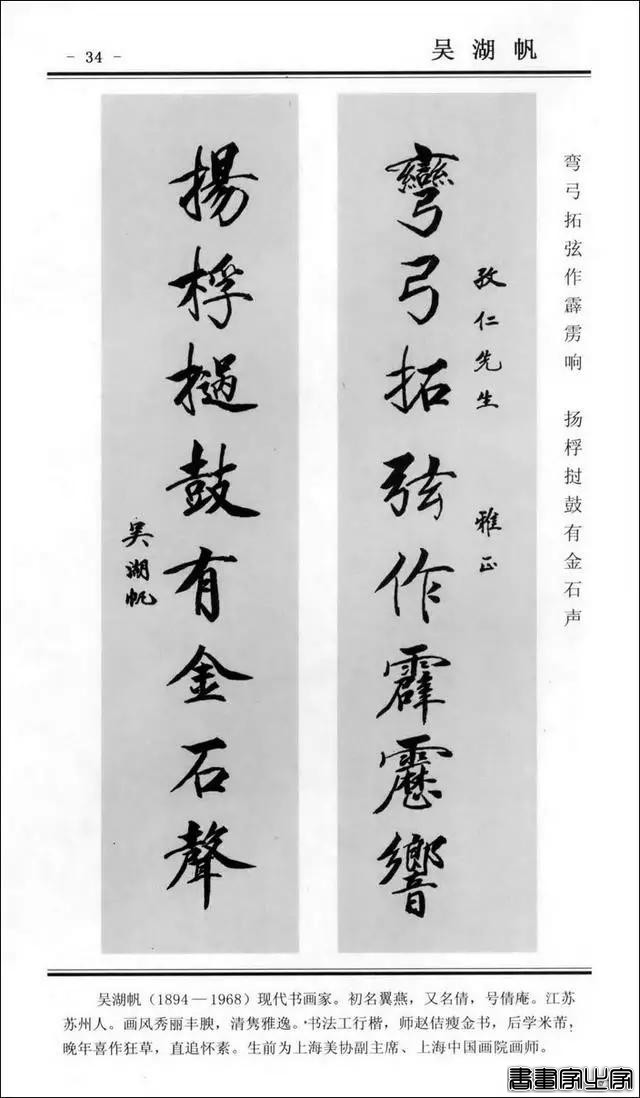 - 34 -
吴湖帆
弯弓拓弦作霹雳响 扬桴挝鼓有金石声
彎弓拓弦作霹靂響
孜仁先生 雅正
揚桴撾鼓有金石聲
吴湖帆
吴湖帆(1894—1968)现代书画家。初名翼燕,又名倩,号倩庵。江苏
苏州人。画风秀丽丰腴,清隽雅逸。书法工行楷,师赵佶瘦金书,后学米芾;
晚年喜作狂草,直追怀素。生前为上海美协副主席、上海中国画院画师。
書畫家史字